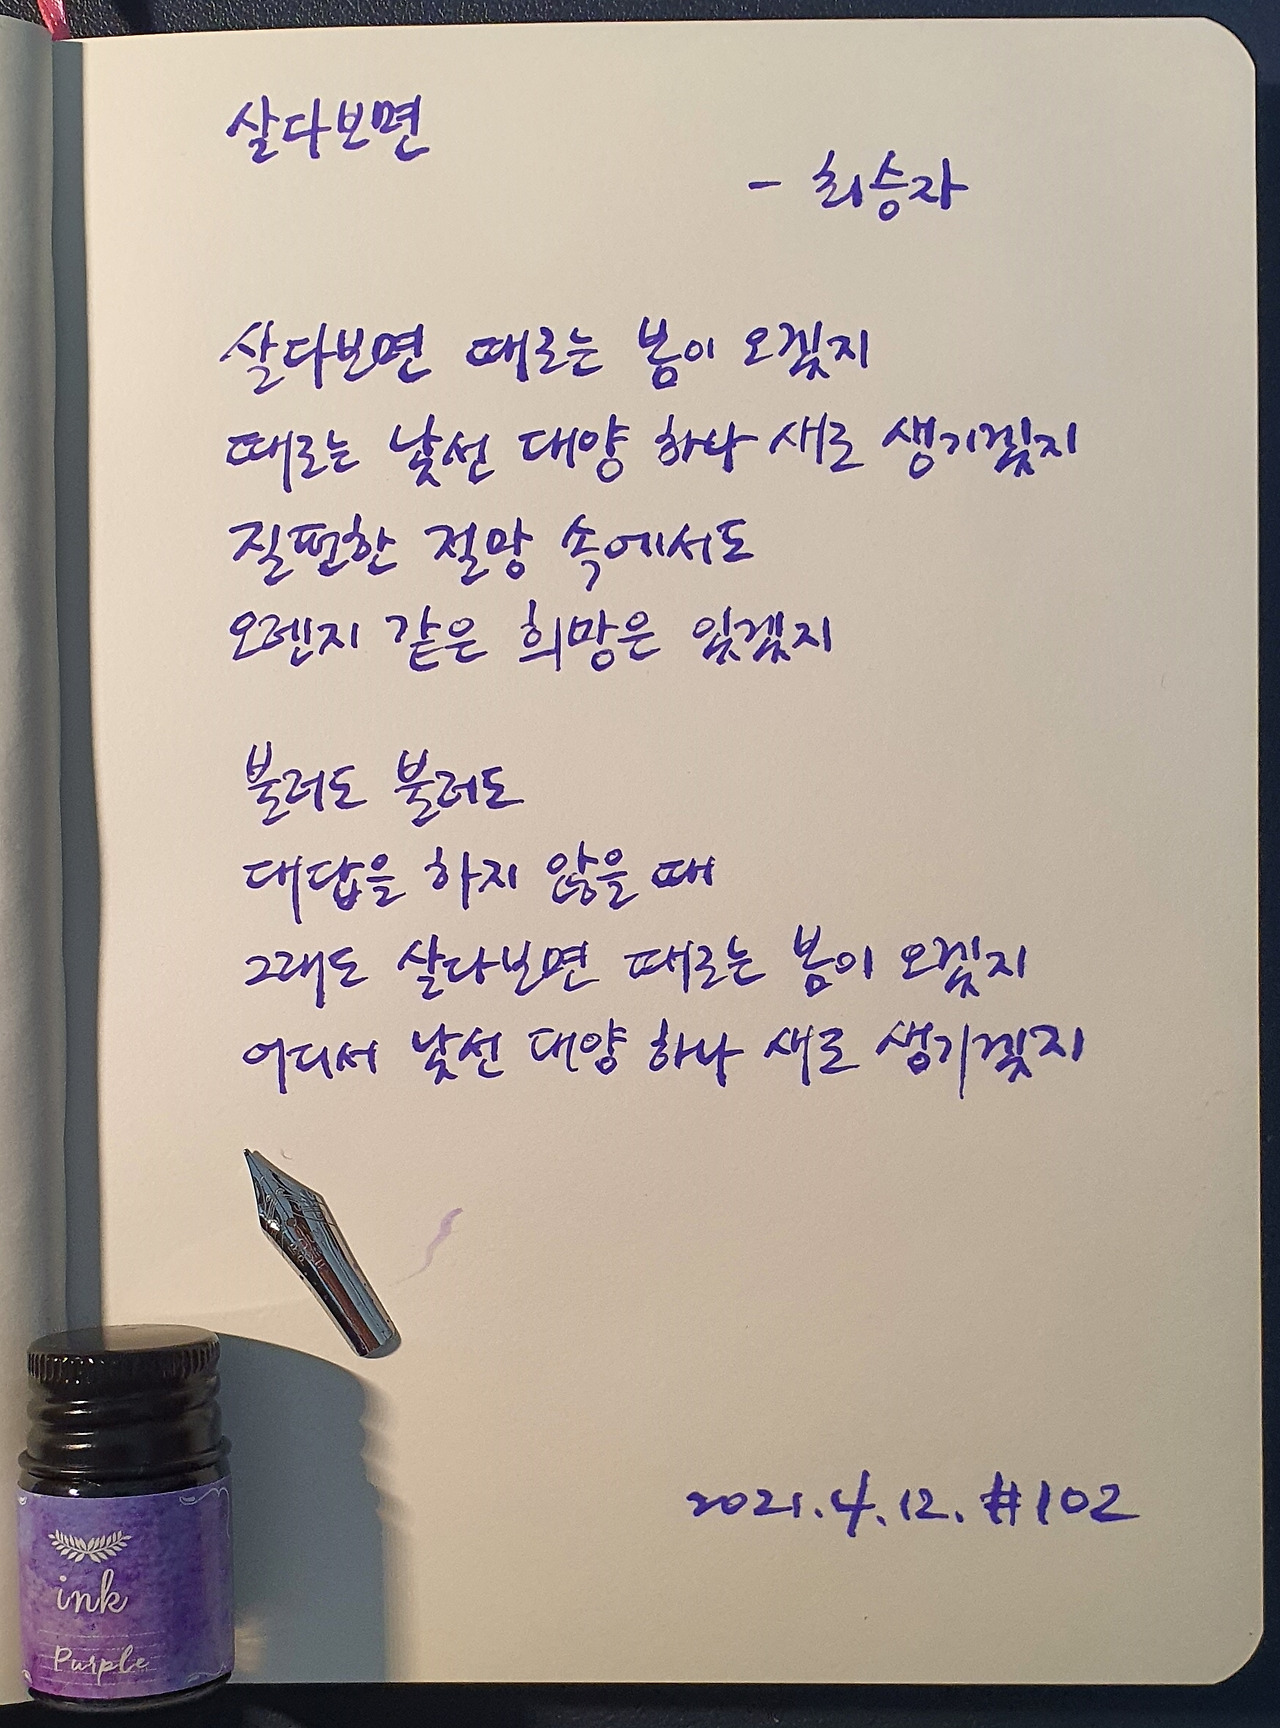 살다보면
- 최승자
살다보면 때로는 봄이 오겠지
때로는 낯선 태양 하나 새로 생기겠지
질펀한 절망 속에서도
오렌지 같은 희망은 있겠지
불러도 불러도
대답을 하지 않을 때
그래도 살다보면 때로는 봄이 오겠지
어디서 낯선 태양 하나 새로 생기겠지
2021.4.12. #102
ink
Purple